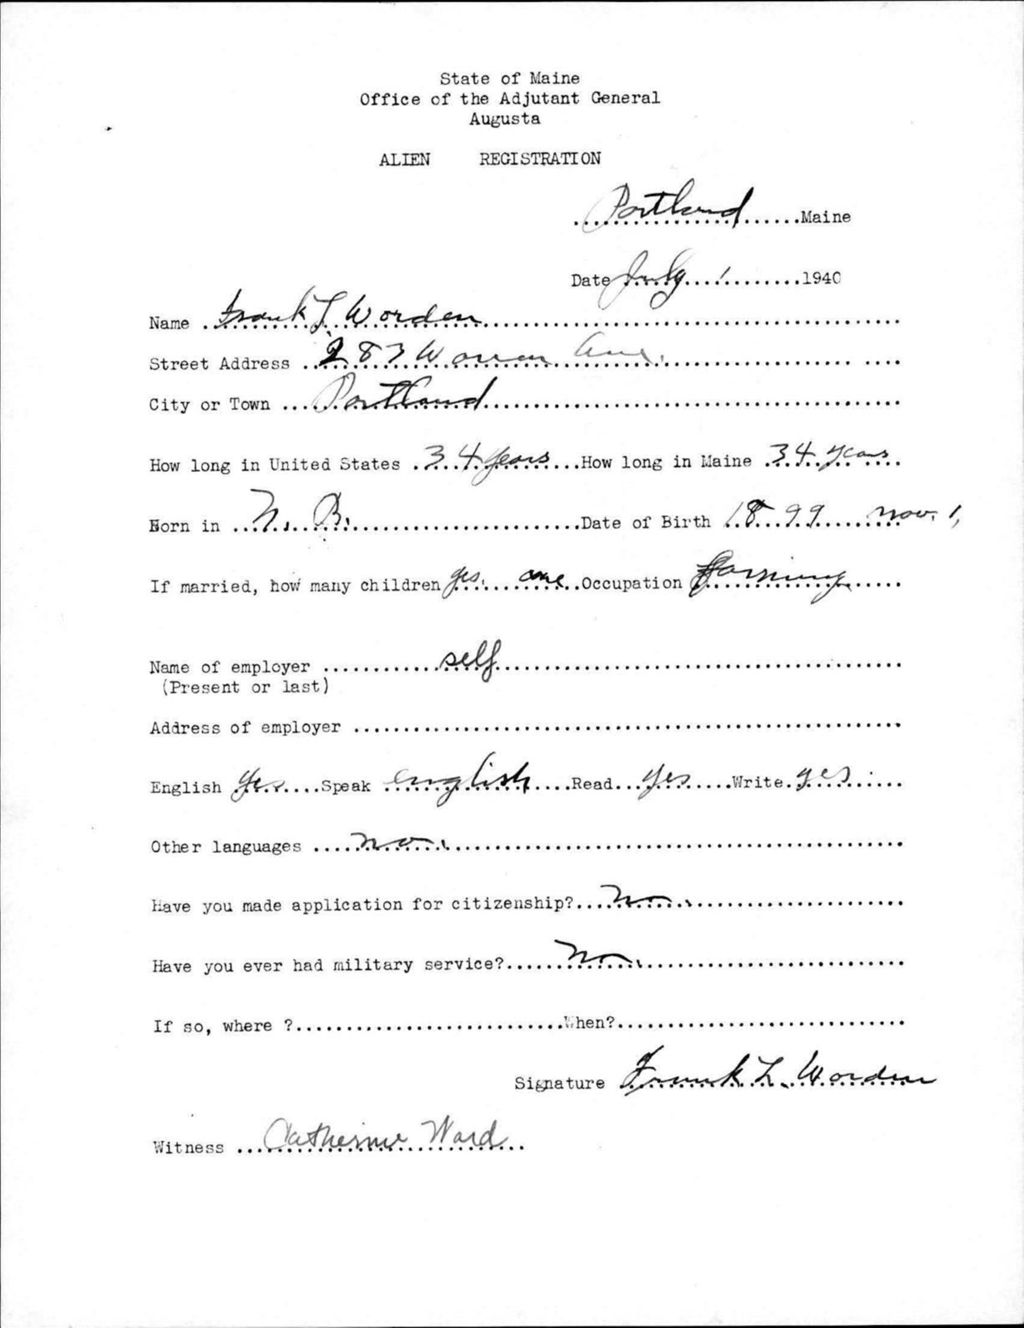 State of Maine
Office of the Adjutant General
Augusta
ALIEN REGISTRATION
Portland Maine
Date July 1 1940
Name Frank L Worden
Street Address 283 Warren Ave.
City or Town Portland
How long in United States 34 years How long in Maine 34 years
Born in N. B. Date of Birth 1899 Nov. 1,
If married, how many children yes. one Occupation Farming
Name of employer self
(Present or last)
Address of employer
English Yes Speak English Read Yes Write yes
Other languages no.
Have you made application for citizenship? No.
Have you ever had military service? No.
If so, where ? When?
Signature Frank L. Worden
Witness Catherine Ward